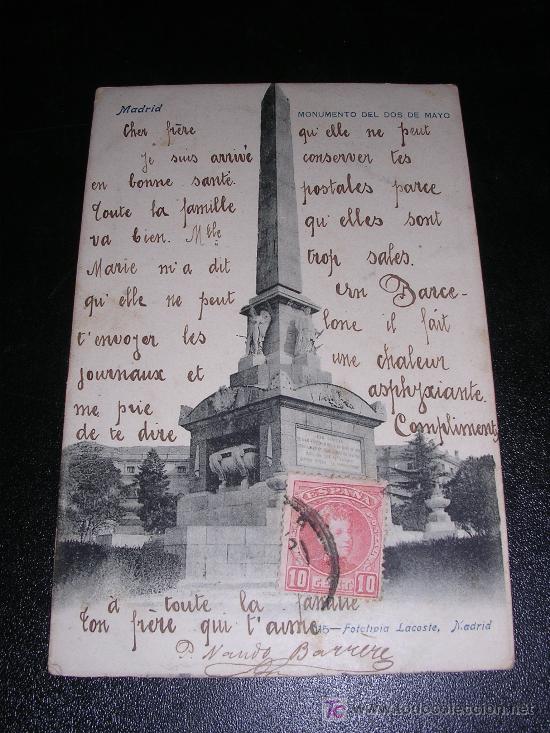 Madrid
MONUMENTO DEL DOS DE MAYO
Cher frère
Je suis arrivé
en bonne santé.
Toute la famille
va bien. Mlle
Marie m'a dit
qu'elle ne peut
t'envoyer les
journaux et
me prie
de te dire
qu'elle ne peut
conserver tes
postales parce
qu'elles sont
trop sales.
En Barce-
lone il fait
une chaleur
asphyxiante.
Compliments
à toute la famille
Ton frère qui t'aime
Nando Barrère
ESPAÑA
10 10
Fototipia Lacoste, Madrid
www.todocoleccion.net